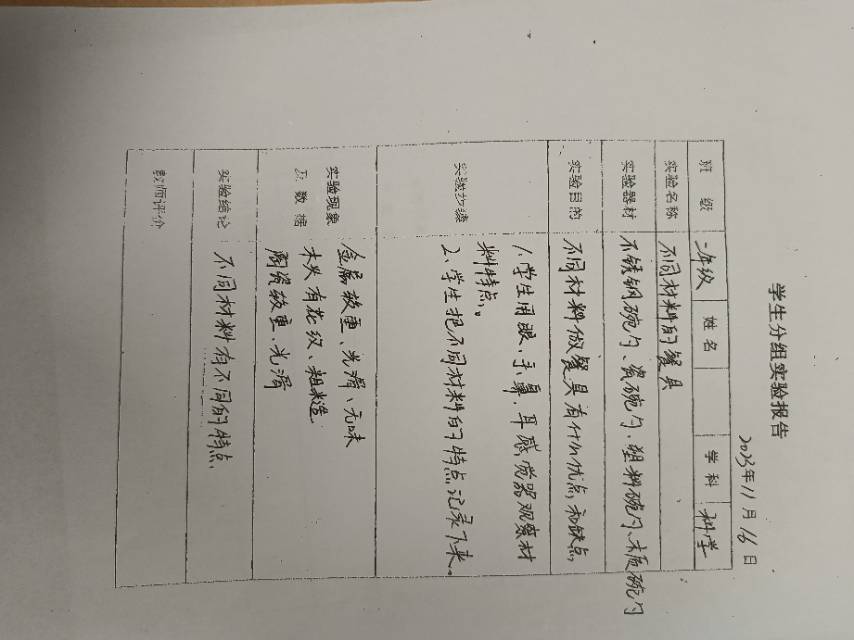 学生分组实验报告
2023年11月16日
班级 二年级 姓名 学科 科学
实验名称 不同材料的餐具
实验器材 不锈钢碗勺、瓷碗勺、塑料碗勺、木质碗勺
实验目的 不同材料做餐具有什么优点和缺点
实验步骤
1、学生用眼、手、鼻、耳感觉器观察材
料特点。
2、学生把不同材料的特点记录下来。
实验现象
及数据
金属较重、光滑、无味
木头有花纹、粗糙
陶瓷较重、光滑
实验结论 不同材料有不同的特点
教师评价